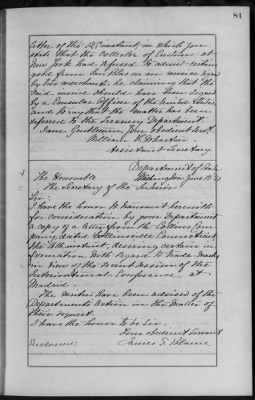 84
letter of the 12th instant, in which you
state that the Collector of Customs at
New York had refused to admit certain
goods from San Blas on an invoice signed
by two merchants, he claiming that the
said invoice should have been signed
by a Consular Officer of the United States,
and to say that the matter has been
referred to the Treasury Department.
I am, Gentlemen, Your obedient servt.
William F. Wharton
Assistant Secretary
Department of State
Washington, June
The Honorable
The Secretary of the Interior.
Sir:
I have the honor to transmit herewith
for consideration by your Department
a copy of a letter from the Collins Com-
pany, dated Collinsville Connecticut
the 8th instant, desiring certain in-
formation with regard to trade marks,
in view of the second session of the
International Conference, at
Madrid.
The writers have been advised of the
Department's action in the matter of
their request.
I have the honor to be Sir,
Your obedient servant
James G. Blaine
Enclosure: